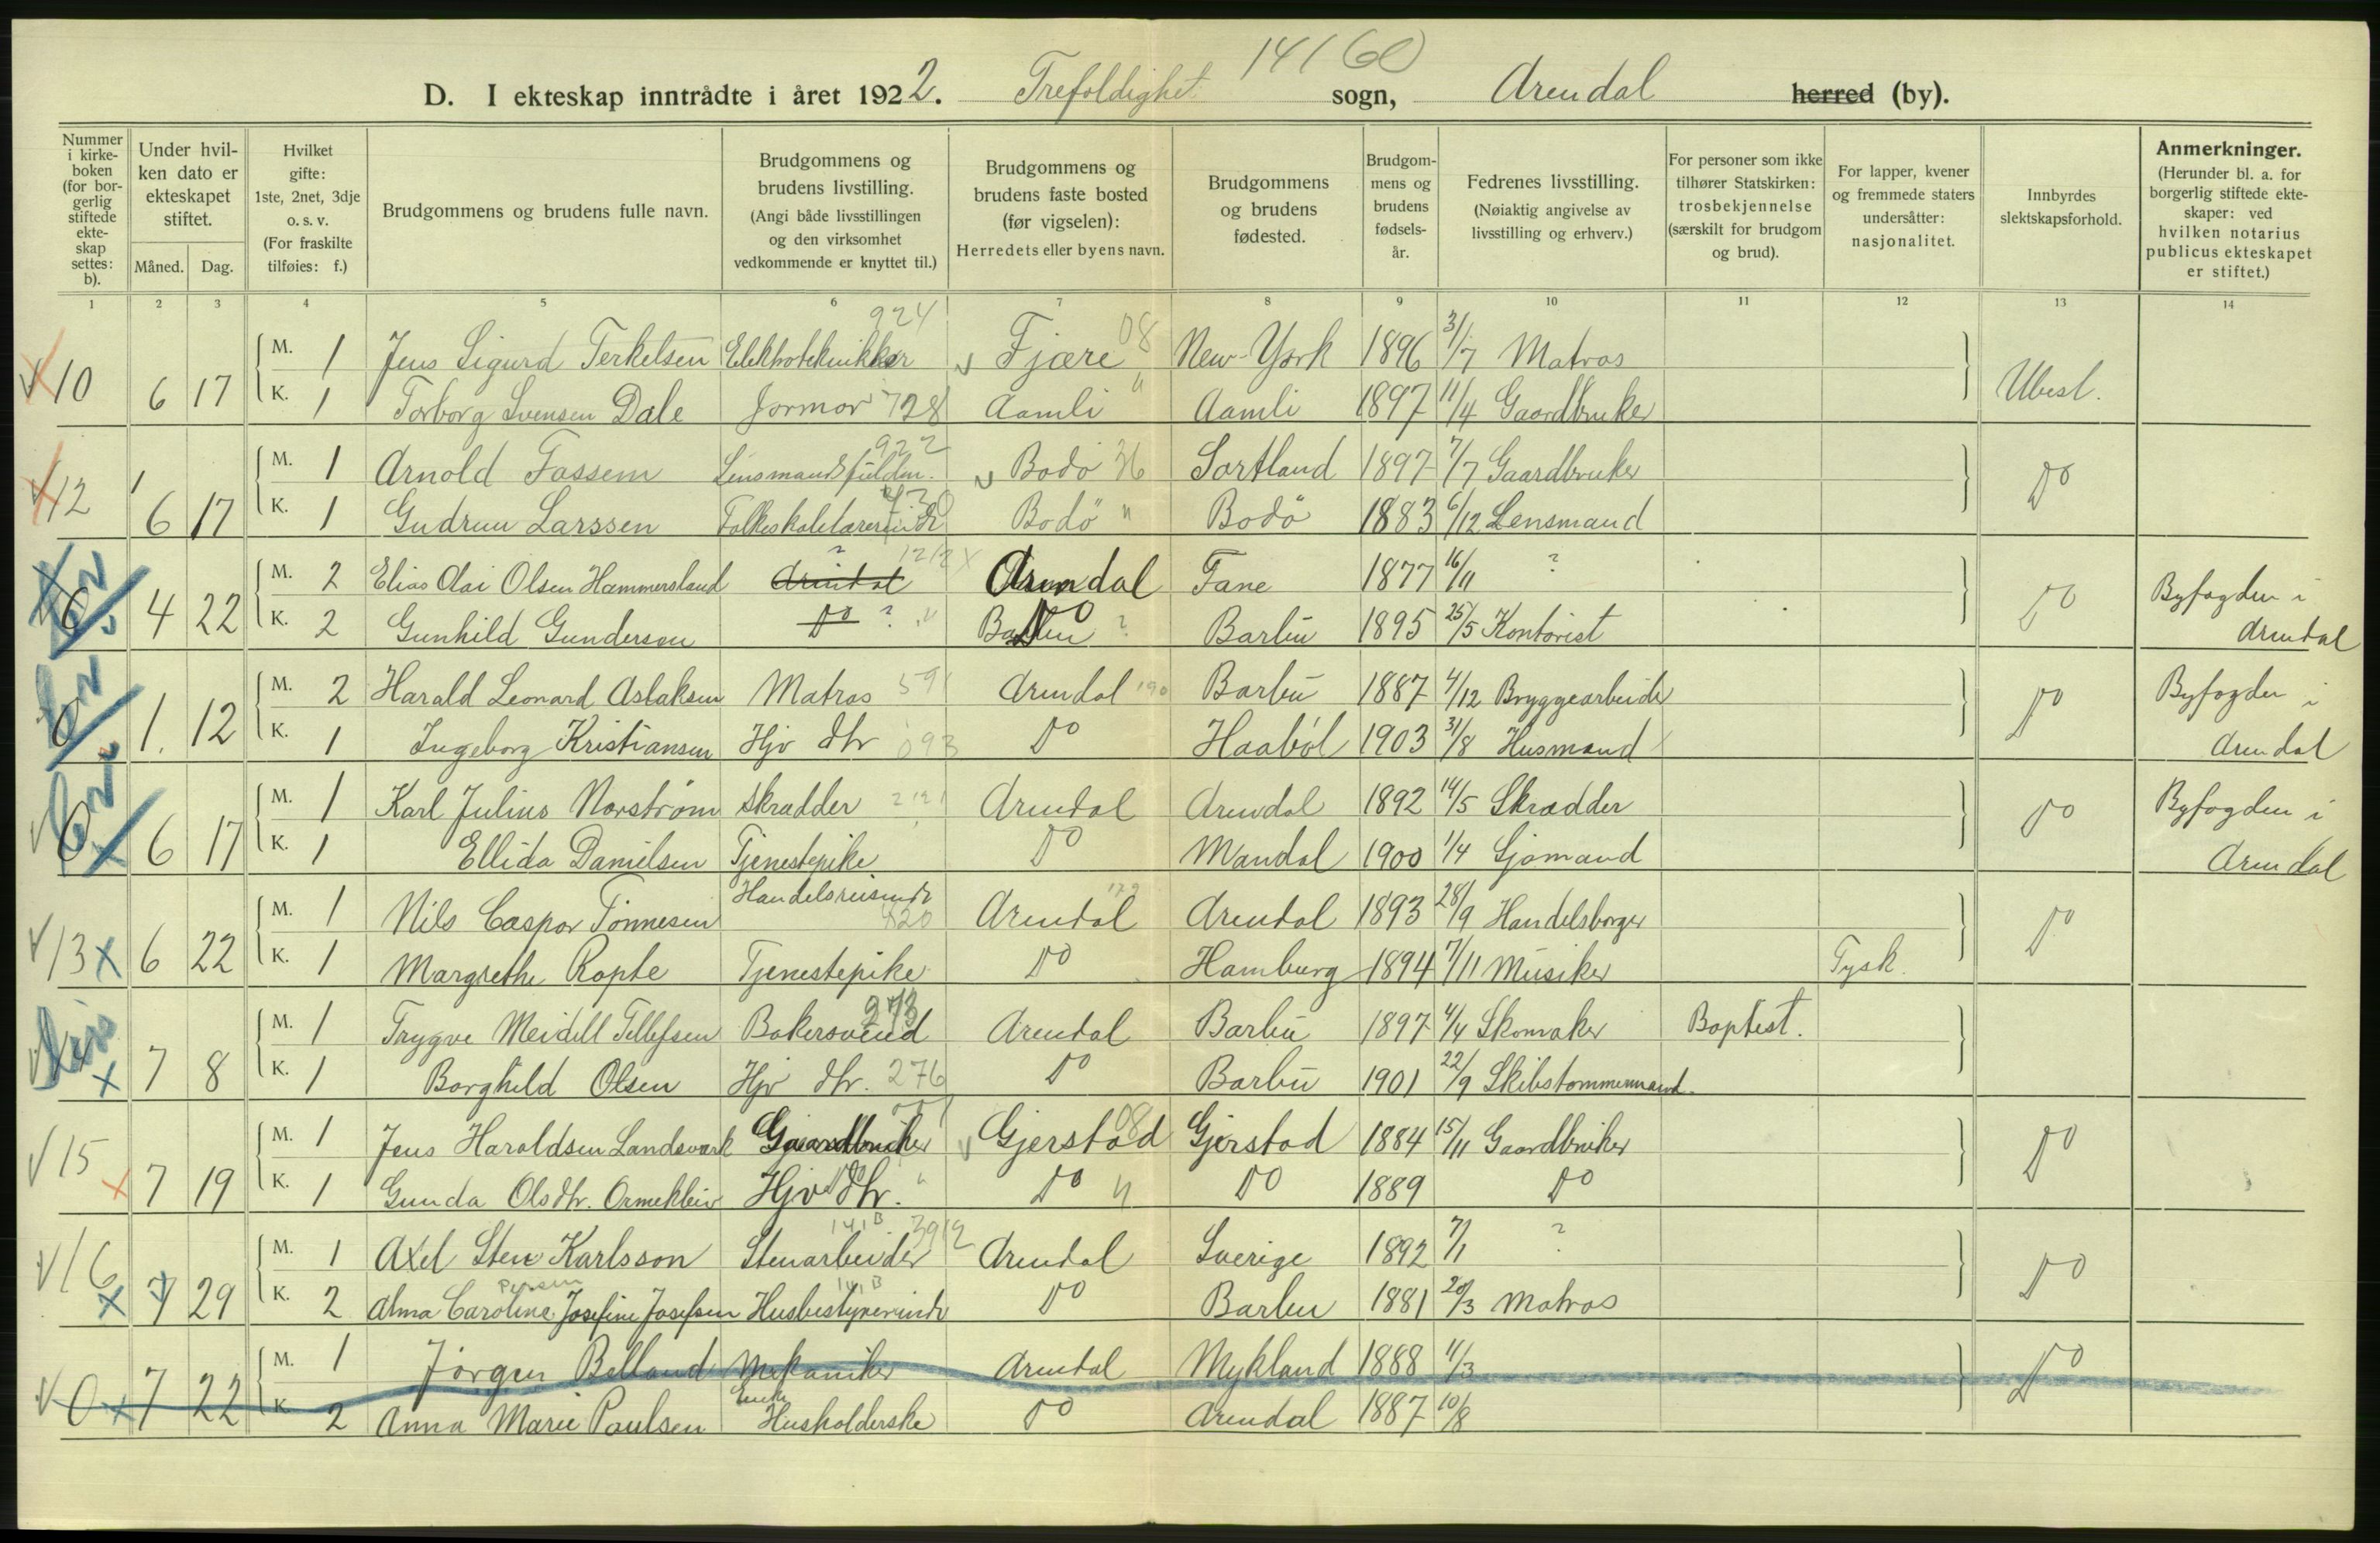 14160
D. I ekteskap inntrådte i året 1922. Trefoldighet sogn, Arendal herred (by).
Nummer i kirkeboken (for borgerlig stiftede ekteskap settes: b).
Under hvilken dato er ekteskapet stiftet.
Måned. Dag.
Hvilket gifte: 1ste, 2net, 3dje o. s. v. (For fraskilte tilføies: f.)
Brudgommens og brudens fulle navn.
Brudgommens og brudens livstilling. (Angi både livsstillingen og den virksomhet vedkommende er knyttet til.)
Brudgommens og brudens faste bosted (før vigselen): Herredets eller byens navn.
Brudgommens og brudens fødested.
Brudgommens og brudens fødselsår.
Fedrenes livsstilling. (Nøiaktig angivelse av livsstilling og erhverv.)
For personer som ikke tilhører Statskirken: trosbekjennelse (særskilt for brudgom og brud).
For lapper, kvener og fremmede staters undersåtter: nasjonalitet.
Innbyrdes slektskapsforhold.
Anmerkninger. (Herunder bl. a. for borgerlig stiftede ekteskaper: ved hvilken notarius publicus ekteskapet er stiftet.)
1 2 3 4 5 6 7 8 9 10 11 12 13 14
M. 1 Jens Sigurd Terkelsen Elektroteknikker 924 Fjære 08 New-York 1896 3/7 Matros
10 6 17 K. 1 Torborg Svensen Dale Jormor 728 Aamli " Aamli 1897 11/4 Gaardbruker Ubesl.
M. 1 Arnold Fossem Lensmandsfuldm. 922 Bodø 36 Sortland 1897 7/7 Gaardbruker
12 6 17 K. 1 Gudrun Larssen Folkeskolelærerinde 430 Bodö " Bodö 1883 6/12 Lensmand Do
M. 2 Elias Olai Olsen Hammersland Arendal ? Arendal Fane 1877 16/11 ?
4 22 K. 2 Gunhild Gundersen Do ? Do ? Barbu 1895 25/5 Kontorist Do Byfogden i Arendal
M. 2 Harald Leonard Aslaksen Matros 591 Arendal 190 Barbu 1887 4/12 Bryggearbeider
0 1. 12 K. 1 Ingeborg Kristiansen Hjv dtr 093 Do Haaböl 1903 31/8 Husmand Do Byfogden i Arendal
M. 1 Karl Julius Norström Skrædder Arendal Arendal 1892 14/5 Skrædder
0 6 17 K. 1 Ellida Danielsen Tjenestepike Do Mandal 1900 1/4 Sjømand Do Byfogden i Arendal
M. 1 Nils Caspar Tönnesen Handelsreisende 420 Arendal Arendal 1893 28/9 Handelsborger
13 x 6 22 K. 1 Margrethe Ropte Tjenestepike Do Hamburg 1894 7/11 Musiker Tysk. Do
M. 1 Trygve Meidell Tellefsen Bakersvend 273 Arendal Barbu 1897 4/4 Skomaker Baptist.
x 7 8 K. 1 Borghild Olsen Hjv dtr. 276 Do Barbu 1901 22/9 Skibstømmermand.
M. 1 Jens Haraldsen Landsverk Gaardbruker Gjerstad 08 Gjerstad 1884 15/11 Gaardbruker
15 x 7 19 K. 1 Gunda Olsdtr. Ormekleiv Hjv dtr. Do " Do 1889 Do Do
M. 1 Axel Sten Karlsson Stenarbeider 141B 3912 Arendal Sverige 1892 7/1 ?
Persen
16 x 7 29 K. 2 Alma Caroline Josefine Josefsen Husbestyrerinde 141B Do Barbu 1881 20/3 Matros Do
M. 1 Jörgen Belland Mekaniker Arendal Mykland 1888 11/3
0 x 7 22 K. 2 Anna Marie Paulsen Enke Husholderske Do Arendal 1887 10/8 Do